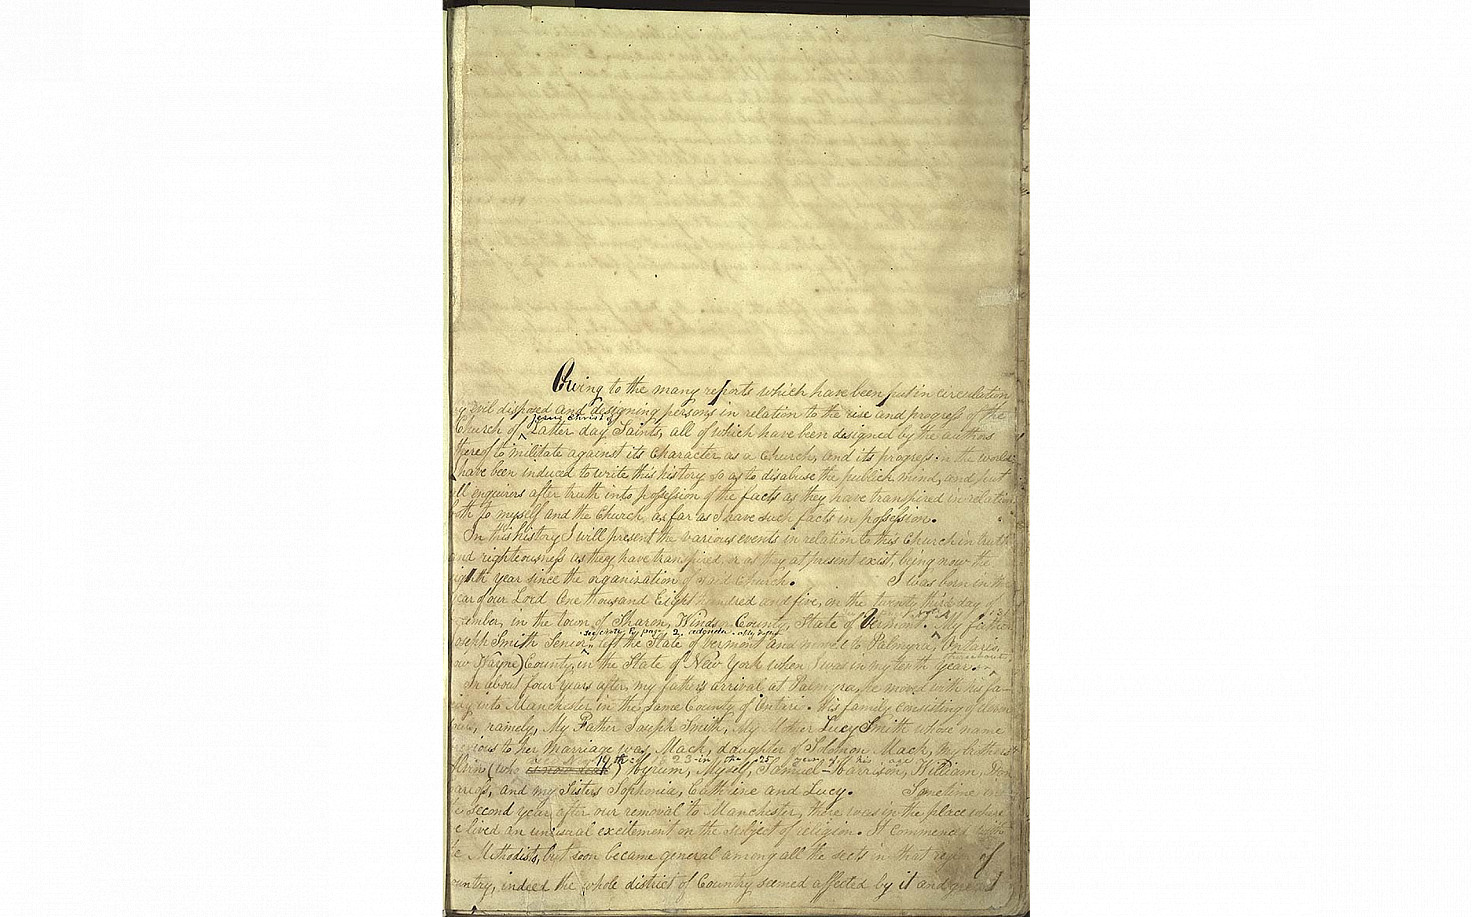 Owing to the many reports which have been put in circulation
evil disposed and designing persons in relation to the rise and progress of the
Jesus Christ of
Church of Latter day Saints, all of which have been designed by the authors
thereof to militate against its character as a church, and its progress in the world;
have been induced to write this history so as to disabuse the publick mind, and put
all enquirers after truth into possession of the facts as they have transpired in relation
both to myself and the Church as far as I have such facts in possession.
In this history I will present the various events in relation to this Church in truth
and righteousness as they have transpired, or as they at present exist, being now the
eighth year since the organization of said Church. I was born in the
year of our Lord One thousand Eight hundred and five, on the twenty third day of
in the town of Sharon, Windsor County, State of Vermont. My father
page 2
Joseph Smith Senior left the State of Vermont and moved to Palmyra, Ontario,
(now Wayne) County, in the State of New York when I was in my tenth year.
In about four years after my father's arrival at Palmyra, he moved with his fa-
into Manchester in the Same County of Ontario. His family consisting of eleven
namely, My Father Joseph Smith, My Mother Lucy Smith whose name
previous to her Marriage was Mack, daughter of Solomon Mack, My brothers
19th 1823 in the 25 year of his age
Alvin (who ) Hyrum, Myself, Samuel-Harrison, William, Don
and my Sisters Sophonia, Cathrine and Lucy. Sometime in
the second year after our removal to Manchester, there was in the place where
we lived an unusual excitement on the subject of religion. It commenced with
the Methodists, but soon became general among all the sects in that region of
country, indeed the whole district of Country seemed affected by it and great